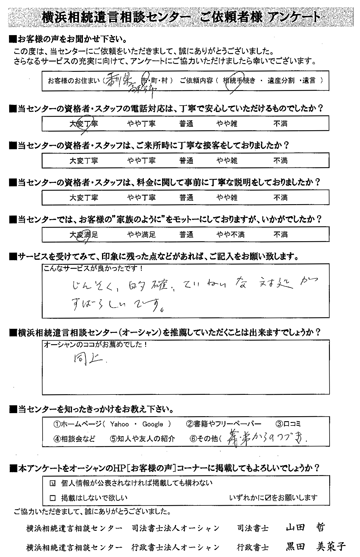 横浜相続遺言相談センター ご依頼者様 アンケート
■お客様の声をお聞かせ下さい。
この度は、当センターにご依頼をいただきまして、誠にありがとうございました。
さらなるサービスの充実に向けて、アンケートにご協力いただけましたら幸いでございます。
お客様のお住まい（ 町・村） ご依頼内容（ 相続手続き ・ 遺産分割 ・ 遺言 ）
■当センターの資格者・スタッフの電話対応は、丁寧で安心していただけるものでしたか？
大変丁寧 やや丁寧 普通 やや雑 不満
■当センターの資格者・スタッフは、ご来所時に丁寧な接客をしておりましたか？
大変丁寧 やや丁寧 普通 やや雑 不満
■当センターの資格者・スタッフは、料金に関して事前に丁寧な説明をしておりましたか？
大変丁寧 やや丁寧 普通 やや雑 不満
■当センターでは、お客様の”家族のように”をモットーにしておりますが、いかがでしたか？
大変満足 やや満足 普通 やや不満 不満
■サービスを受けてみて、印象に残った点などがあれば、ご記入をお願い致します。
こんなサービスが良かったです！
じんそく，的確，ていねいな対処が
すばらしいです。
■横浜相続遺言相談センター（オーシャン）を推薦していただくことは出来ますでしょうか？
オーシャンのココがお薦めでした！
同上．
■当センターを知ったきっかけをお教え下さい。
①ホームページ（ Yahoo ・ Google ） ②書籍やフリーペーパー ③口コミ
④相談会など ⑤知人や友人の紹介 ⑥その他（ ）
■本アンケートをオーシャンのHP【お客様の声】コーナーに掲載してもよろしいでしょうか？
個人情報が公表されなければ掲載しても構わない
□ 掲載はしないで欲しい いずれかに☑をお願いします
ご協力いただきまして、誠にありがとうございました。
横浜相続遺言相談センター 司法書士法人オーシャン 司法書士 山田 哲
横浜相続遺言相談センター 行政書士法人オーシャン 行政書士 黒田 美菜子